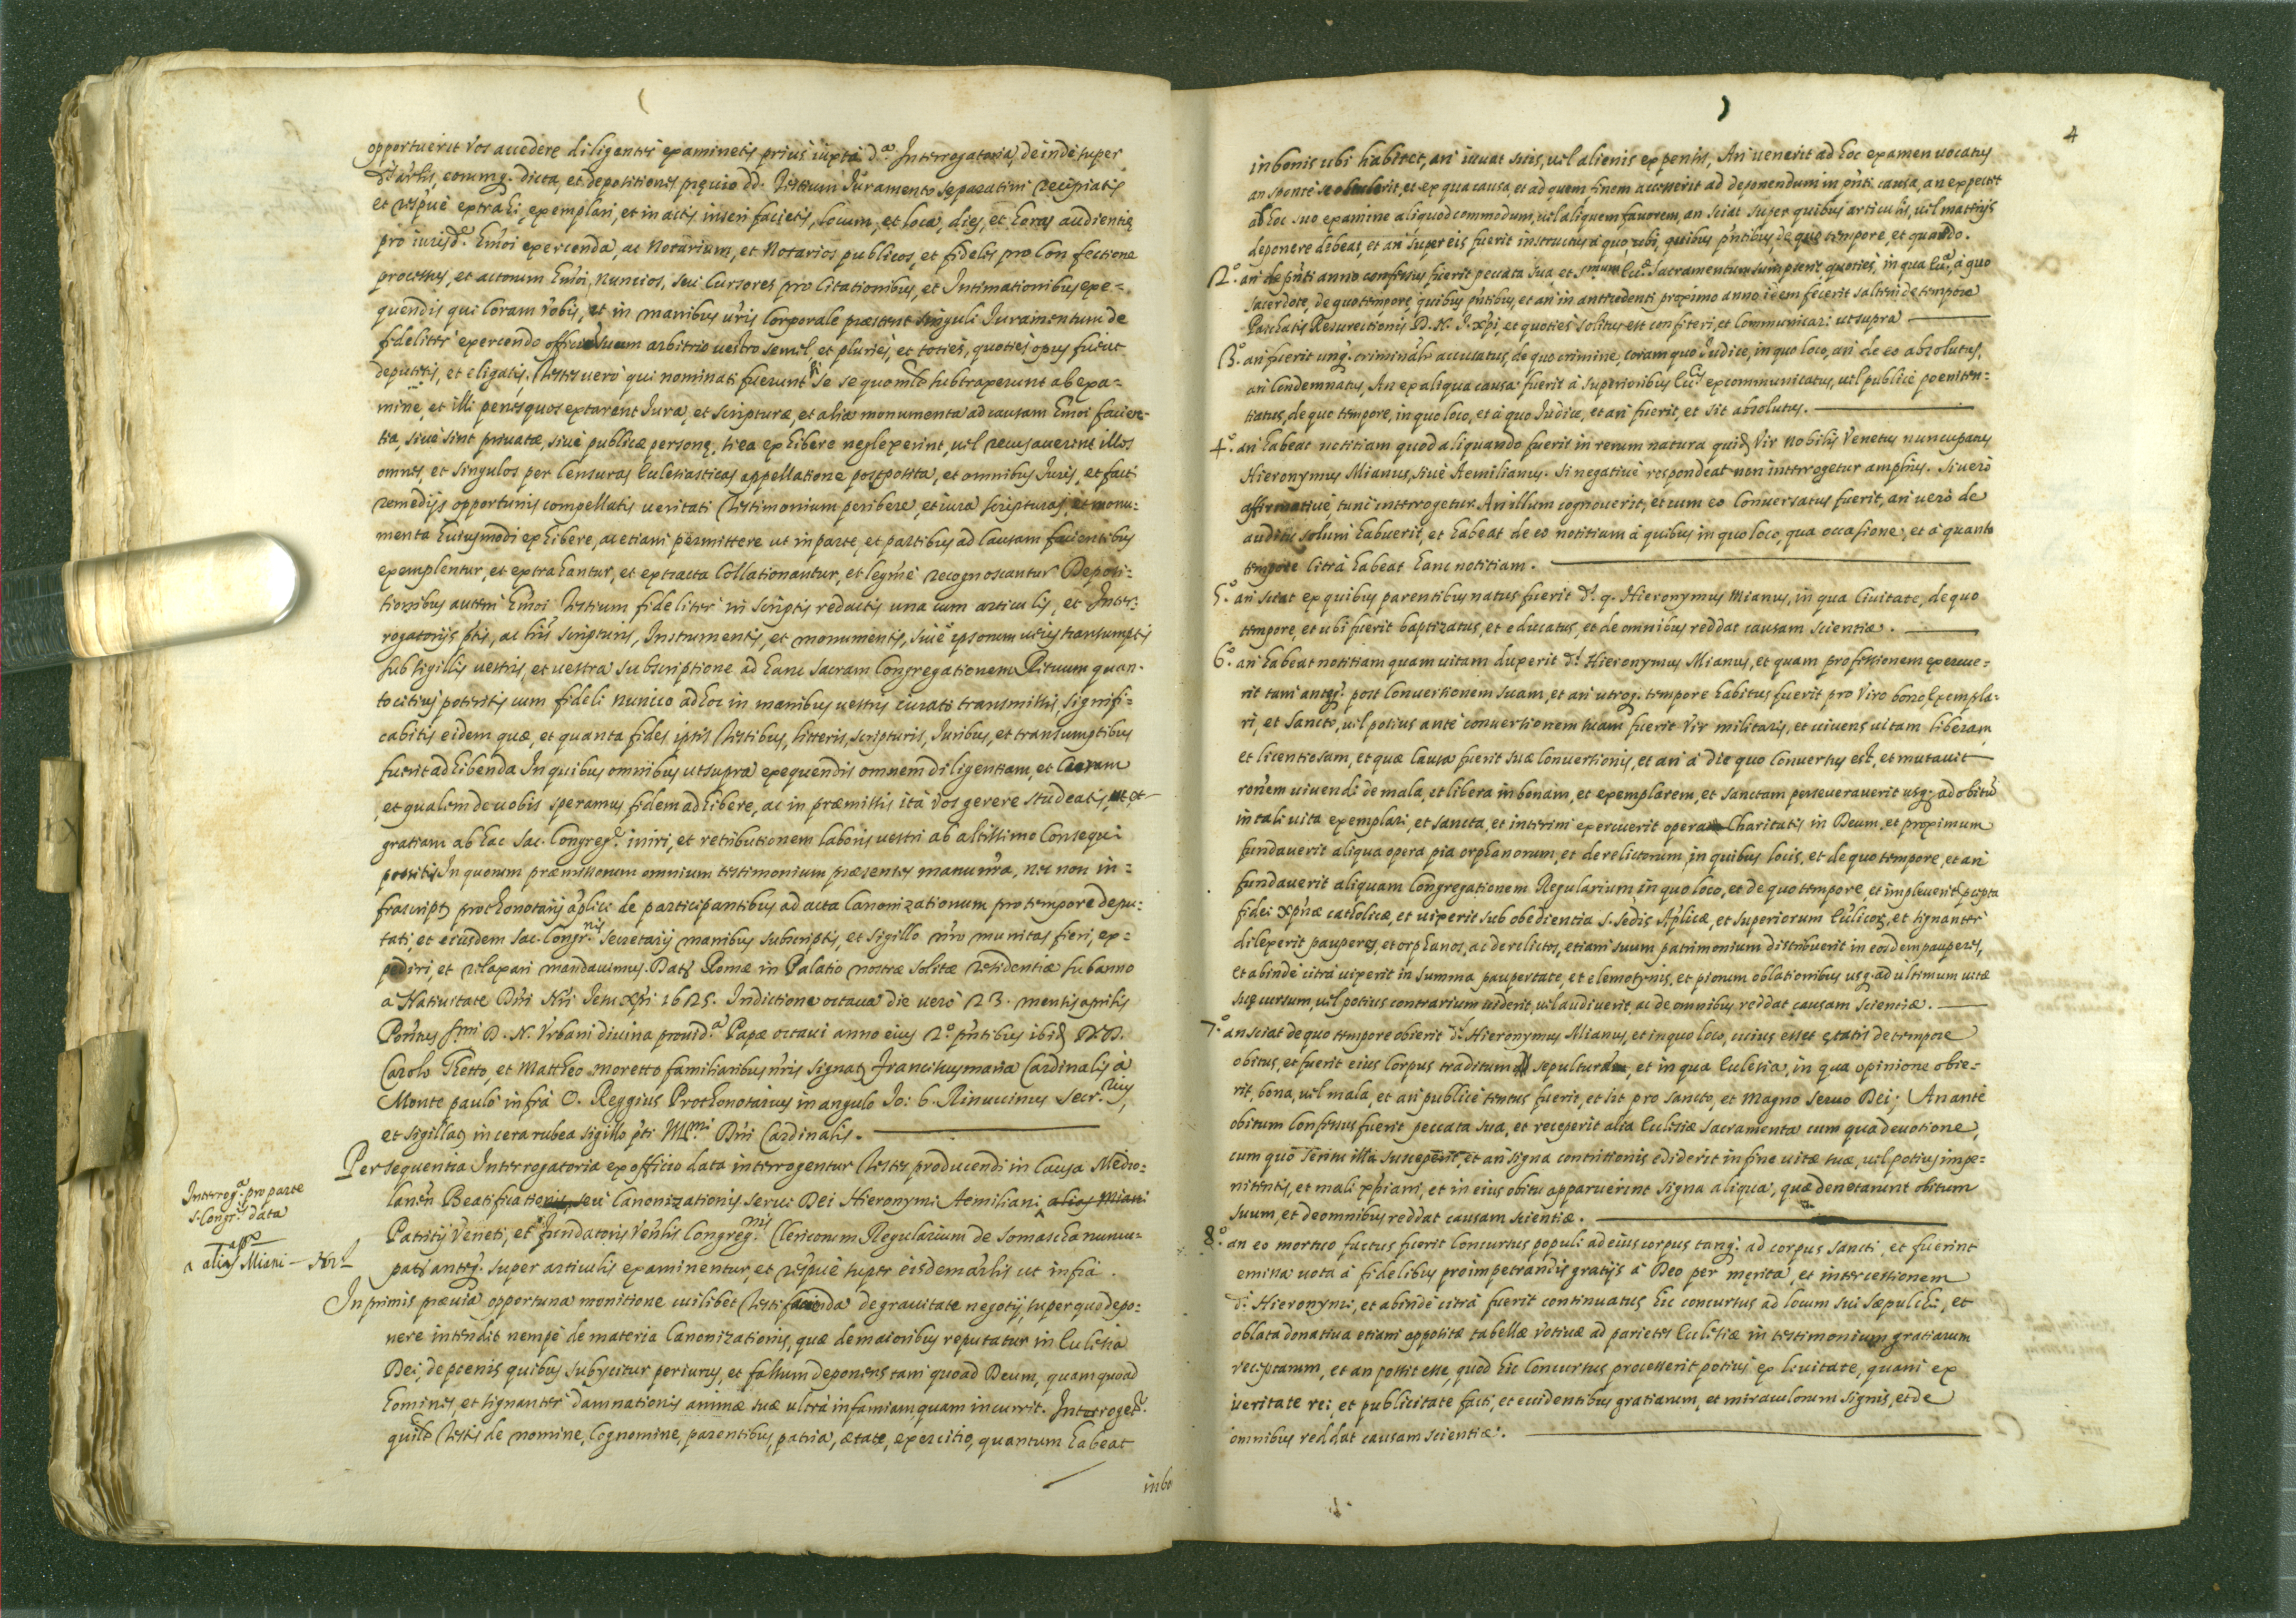 opportuerit vos accedere diligenter examinetis prius iuxta d.ª Interrogatoria, deinde super
et respué extrahi, exemplari, et in actis inseri facietis, locum, et loca, dies, et horas audientię
pro iurisd.e Emoi exercenda, ac Notarium, et Notarios publicos, et fideles pro Confectione
processus, et actorum Emoi, Nuncios, seu Cursores pro Citationibus, et Intimationibus exe=
quendis qui Coram Vobis, et in manibus vris Corporale præstent singuli Iuramentum de
fideliter exercendo officium suum arbitrio vestro semel, et pluriés, et totiés, quotiés opus fuerit
deputetis, et eligatis. Testes vero qui nominati fuerunt si se quomlt subtraxerunt ab exa=
mine, et illi penes quos extarent Iura, et scripturæ, et alia monumenta ad causam Emoi facien=
tia, sivé sint privatæ, sivé publicæ personę, si ea exhibere neglexerint, vel recusaverint illos
omnes, et singulos per Censuras Ecclesiasticas appellatione postposita, et omnibus Iuris, et facti
remedijs opportunis compellatis veritati testimonium peribere, et iura scripturas, et monu=
menta huiusmodi exhibere, ac etiam permittere ut in parte, et partibus ad Causam facientibus
exemplentur, et extrahantur, et extracta Collationantur, et legme recognoscantur Deposi=
tionibus autem Emoi Testium fideliter in scriptis redactis una cum articulis, et Inter=
rogatorijs ptis, ac hris scripturis, Instrumentis, et monumentis, sivé ipsorum veris transumptis
sub sigillis vestris, et vestra subscriptione ad hanc sacram Congregationem Rituum quan=
to citius poteritis cum fideli nuncio ad hoc in manibus vestris iurato transmissis, signifi=
cabitis eidem quæ, et quanta fides ipsis Testibus, litteris, scripturis, Iuribus, et transumptibus
fuerit adhibenda In quibus omnibus ut supra exequendis omnem diligentiam, et Curam
, et qualem de vobis speramus fidem adhibere, ac in præmissis ità vos gerere studeatis, ut et
gratiam ab hac Sac. Congreg.e iniri, et retributionem laboris vestri ab altissimo Consequi
possitis In quorum præmissorum omnium testimonium præsentes manu nra, nec non in=
frascript protonotarij aplici de participantibus ad acta Canonizationum pro tempore depu=
tati, et eiusdem Sac. Congr.nis secretarij manibus subscriptis, et sigillo nro munitas fieri, ex=
pediri, et relaxari mandavimus. Dat Romæ in Palatio nostræ solitæ residentiæ sub anno
a Nativitate Dni Nri Iesu Xpi 1625. Indictione octava die verò 23. mensis aprilis
Pontus smi D. N. Urbani divina provid.ª Papæ octavi anno eius 2.º pntibus ibid DD.
Carolo Ghetto, et Mattheo moretto familiaribus nris signat Franciscus maria Cardinalis à
Monte paulò infrà O. Reggius Prothonotarius in angulo Io: b. Rinuccinus Secr.rius,
et sigillat in cera rubea sigillo pti Illmi Dni Cardinalis.
Per sequentia Interrogatoria ex officio data interrogentur Testes producendi in Causa Medio=
lanen Beatificationis, seu Canonizationis Servi Dei Hieronymi Aemiliani, alias Miani
Patritij Veneti, et fundatoris Venlis Congreg.nis Clericorum Regularium de Somascha nuncu=
pat antq. super articulis examinentur, et respué super eisdem arlis ut infrà.
Interrog.ª pro parte
s. Congr.s data
a alias Miani
In primis prævia opportuna monitione cuilibet Testi facienda de gravitate negotij, super quo depo=
nere intendit nempé de materia Canonizationis, quæ de maioribus reputatur in Ecclesia
Dei, de pœnis quibus subijcitur periurus, et falsum deponens tam quoad Deum, quam quoad
homines, et signanter damnationis animæ suæ ultrà infamiam quam incurrit. Interroget.r
quilt Testis de nomine, Cognomine, parentibus, patria, ætate, exercitio, quantum habeat
inbo
4
in bonis ubi habitet, an vivat suis, vel alienis expensis, An venerit ad hoc examen vocatus
an sponté se obtulerit, et ex qua causa, et ad quem finem accesserit ad deponendum in pnti causa, an expectet
ab hoc suo examine aliquod commodum, vel aliquem favorem, an sciat super quibus articulis, vel materijs
deponere debeat, et an super eis fuerit instructus à quo, ubi, quibus pntibus, de quo tempore, et quando.
2.º an de pnti anno confessus fuerit peccata sua, et smum Euc.ª Sacramentum sumpserit quoties, in qua Ecc.ª, à quo
sacerdote, de quo tempore, quibus pntibus, et an in antecedenti proximo anno idem fecerit saltem de tempore
Paschatis Resurectionis D. N. I. Xpi, et quoties solitus est confiteri, et Communicari ut supra
3.º an fuerit unq. criminalr accusatus, de quo crimine, coram quo Iudice, in quo loco, an de eo absolutus,
an Condemnatus, An ex aliqua causa fuerit à superioribus Eccis excommunicatus, vel publicè poeniten=
tiatus, de quo tempore, in quo loco, et à quo Iudice, et an fuerit, et sit absolutus.
4.º an habeat notitiam quod aliquando fuerit in rerum natura quid Vir Nobilis Venetus nuncupatus
Hieronymus Mianus, sivé Aemilianus. Si negativè respondeat non interrogetur amplius. Si verò
affirmativé, tunc interrogetur. An illum cognoverit, et cum eo Conversatus fuerit, an verò de
auditu solum habuerit, et habeat de eo notitiam à quibus in quo loco, qua occasione, et à quanto
tempore citrà habeat hanc notitiam.
5.º an sciat ex quibus parentibus natus fuerit d. q. Hieronymus Mianus, in qua Civitate, de quo
tempore, et ubi fuerit baptizatus, et educatus, et de omnibus reddat causam scientiæ.
6.º an habeat notitiam quam vitam duxerit d. Hieronymus Mianus, et quam professionem exercue=
rit tam anteq. post Conversionem suam, et an utroq. tempore habitus fuerit pro Viro bono Exempla=
ri, et Sancto, vel potius ante conversionem suam fuerit Vir militaris, et vivens vitam liberam,
et licentiosam, et quæ Causa fuerit suæ Conversionis, et an à die quo Conversus est, et mutavit
ronem vivendi de mala, et libera in bonam, et exemplarem, et sanctam perseveraverit usq. ad obitū
in tali vita exemplari, et sancta, et interim exercuerit opera Charitatis in Deum, et proximum
fundaverit aliqua opera pia orphanorum, et derelictorum, in quibus locis, et de quo tempore, et an
fundaverit aliquam Congregationem Regularium in quo loco, et de quo tempore, et impleverit pcepta
fidei xpnæ catholicæ, et vixerit sub obedientia S. Sedis Aplicæ, et superiorum Ecclicor, et signanter
dilexerit pauperes, et orphanos, ac derelictos, etiam suum patrimonium distribuerit in eosdem pauperes,
et abinde citrà vixerit in summa paupertate, et elemosynis, et piorum oblationibus usq. ad ultimum vitæ
suę cursum, vel potius contrarium viderit, vel audiverit, ac de omnibus reddat causam scientiæ.
7.º an sciat de quo tempore obierit d. Hieronymus Mianus, et in quo loco, cuius esset ętatis de tempore
obitus, et fuerit eius Corpus traditum sepulturæ, et in qua Ecclesia, in qua opinione obie=
rit, bona, vel mala, et an publicè tentus fuerit, et sit pro Sancto, et Magno Servo Dei; An anté
obitum Confessus fuerit peccata sua, et receperit alia Ecclesiæ Sacramenta cum qua devotione,
cum quo Seritu illa susceperit, et an signa contritionis ediderit in fine vitæ suæ, vel potius impe=
nitentis, et mali xpiani, et in eius obitu apparuerint signa aliqua, quæ denotarunt obitum
suum, et de omnibus reddat causam scientiæ.
8.º an eo mortuo factus fuerit Concursus populi ad eius corpus tanq. ad corpus Sancti, et fuerint
emissa vota à fidelibus pro impetrandis gratijs à Deo per merita, et intercessionem
d. Hieronymi, et abinde citrà fuerit continuatus hic concursus ad locum sui Sæpulchri, et
oblata donativa etiam appositæ tabellæ Votivæ ad parietes Ecclesiæ in testimonium gratiarum
receptarum, et an possit esse, quod hic Concursus processerit potius ex levitate, quam ex
veritate rei, et publicitate facti, et evidentibus gratiarum, et miraculorum signis, et de
omnibus reddat causam scientiæ.